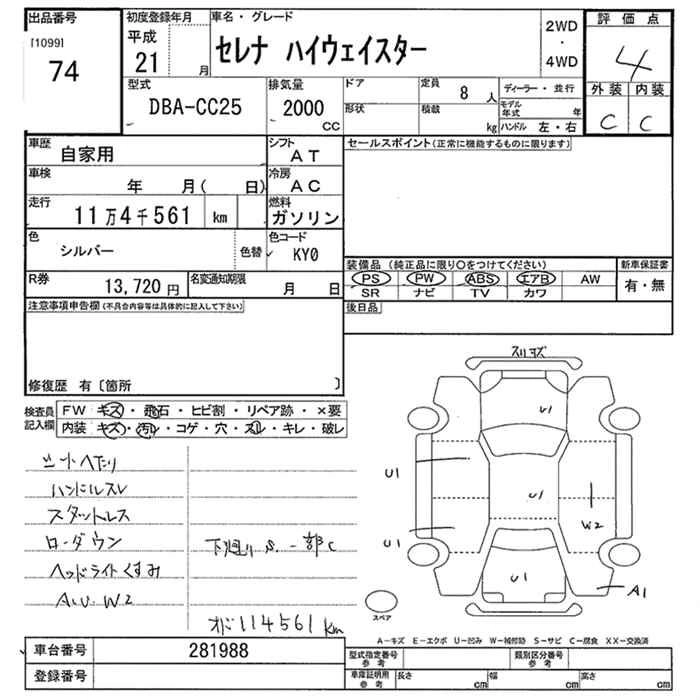 出品番号
[1099]
74
初度登録年月
平成
21 月
車名・グレード
セレナ ハイウェイスター
2WD
・
4WD
評価点
4
外装 内装
C C
型式
DBA-CC25
排気量
2000
CC
ドア
形状
定員
8 人
積載
kg
ディーラー・並行
モデル年式 年
ハンドル 左・右
車歴
自家用
シフト
AT
車検
年 月( 日)
冷房
AC
走行
11万4千561 km
燃料
ガソリン
色
シルバー
色替
色コード
KY0
R券
13,720 円
名変通知期限
月 日
セールスポイント(正常に機能するものに限ります)
装備品 (純正品に限り○をつけてください)
PS PW ABS エアB AW
SR ナビ TV カワ
新車保証書
有・無
注意事項申告欄(不具合内容等は具体的に記入して下さい)
後日品
修復歴 有〔箇所 〕
検査員記入欄
FW キズ・飛石・ヒビ割・リペア跡・×要
内装 キズ・汚レ・コゲ・穴・スレ・キレ・破レ
シートヘたり
ハンドルスレ
スタットレス
ローダウン
ヘッドライトくすみ
A.U.W2
下廻りS.一部C
オド114561km
スリキズ
U1
U1
U1
W2
U1
U1
A1
スペア
A−キズ E−エクボ U−凹み W−補修跡 S−サビ C−腐食 XX−交換済
車台番号
281988
登録番号
型式指定番号
参考
類別区分番号
参考
車庫証明用
参考
長さ cm
幅 cm
高さ cm